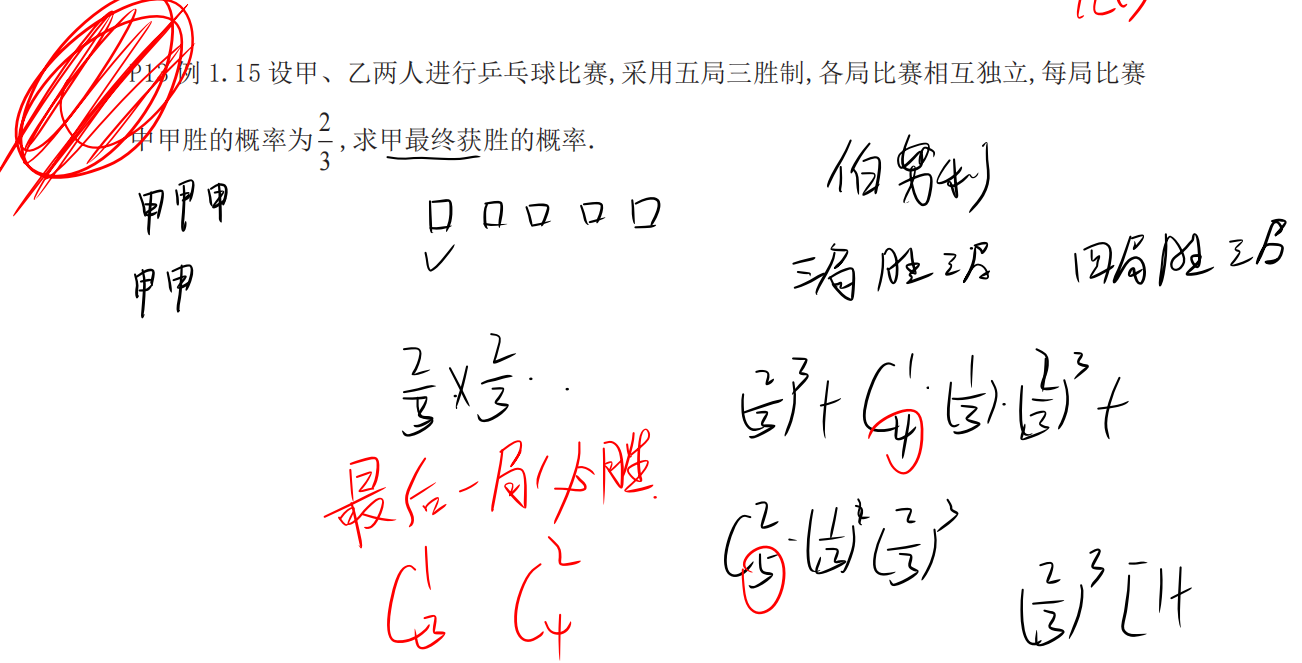 P13 例 1.15 设甲、乙两人进行乒乓球比赛,采用五局三胜制,各局比赛相互独立,每局比赛
中甲胜的概率为 2/3 ,求甲最终获胜的概率.
伯努利
甲甲甲
甲甲
三局胜三局 四局胜三局
2/3 × 2/3 · ·
(2/3)^3 + C_4^1 · (1/3) · (2/3)^3 +
最后一局必胜.
C_5^2 · (1/3)^2 (2/3)^3
C_3^1 C_4^2
(2/3)^3 [1+